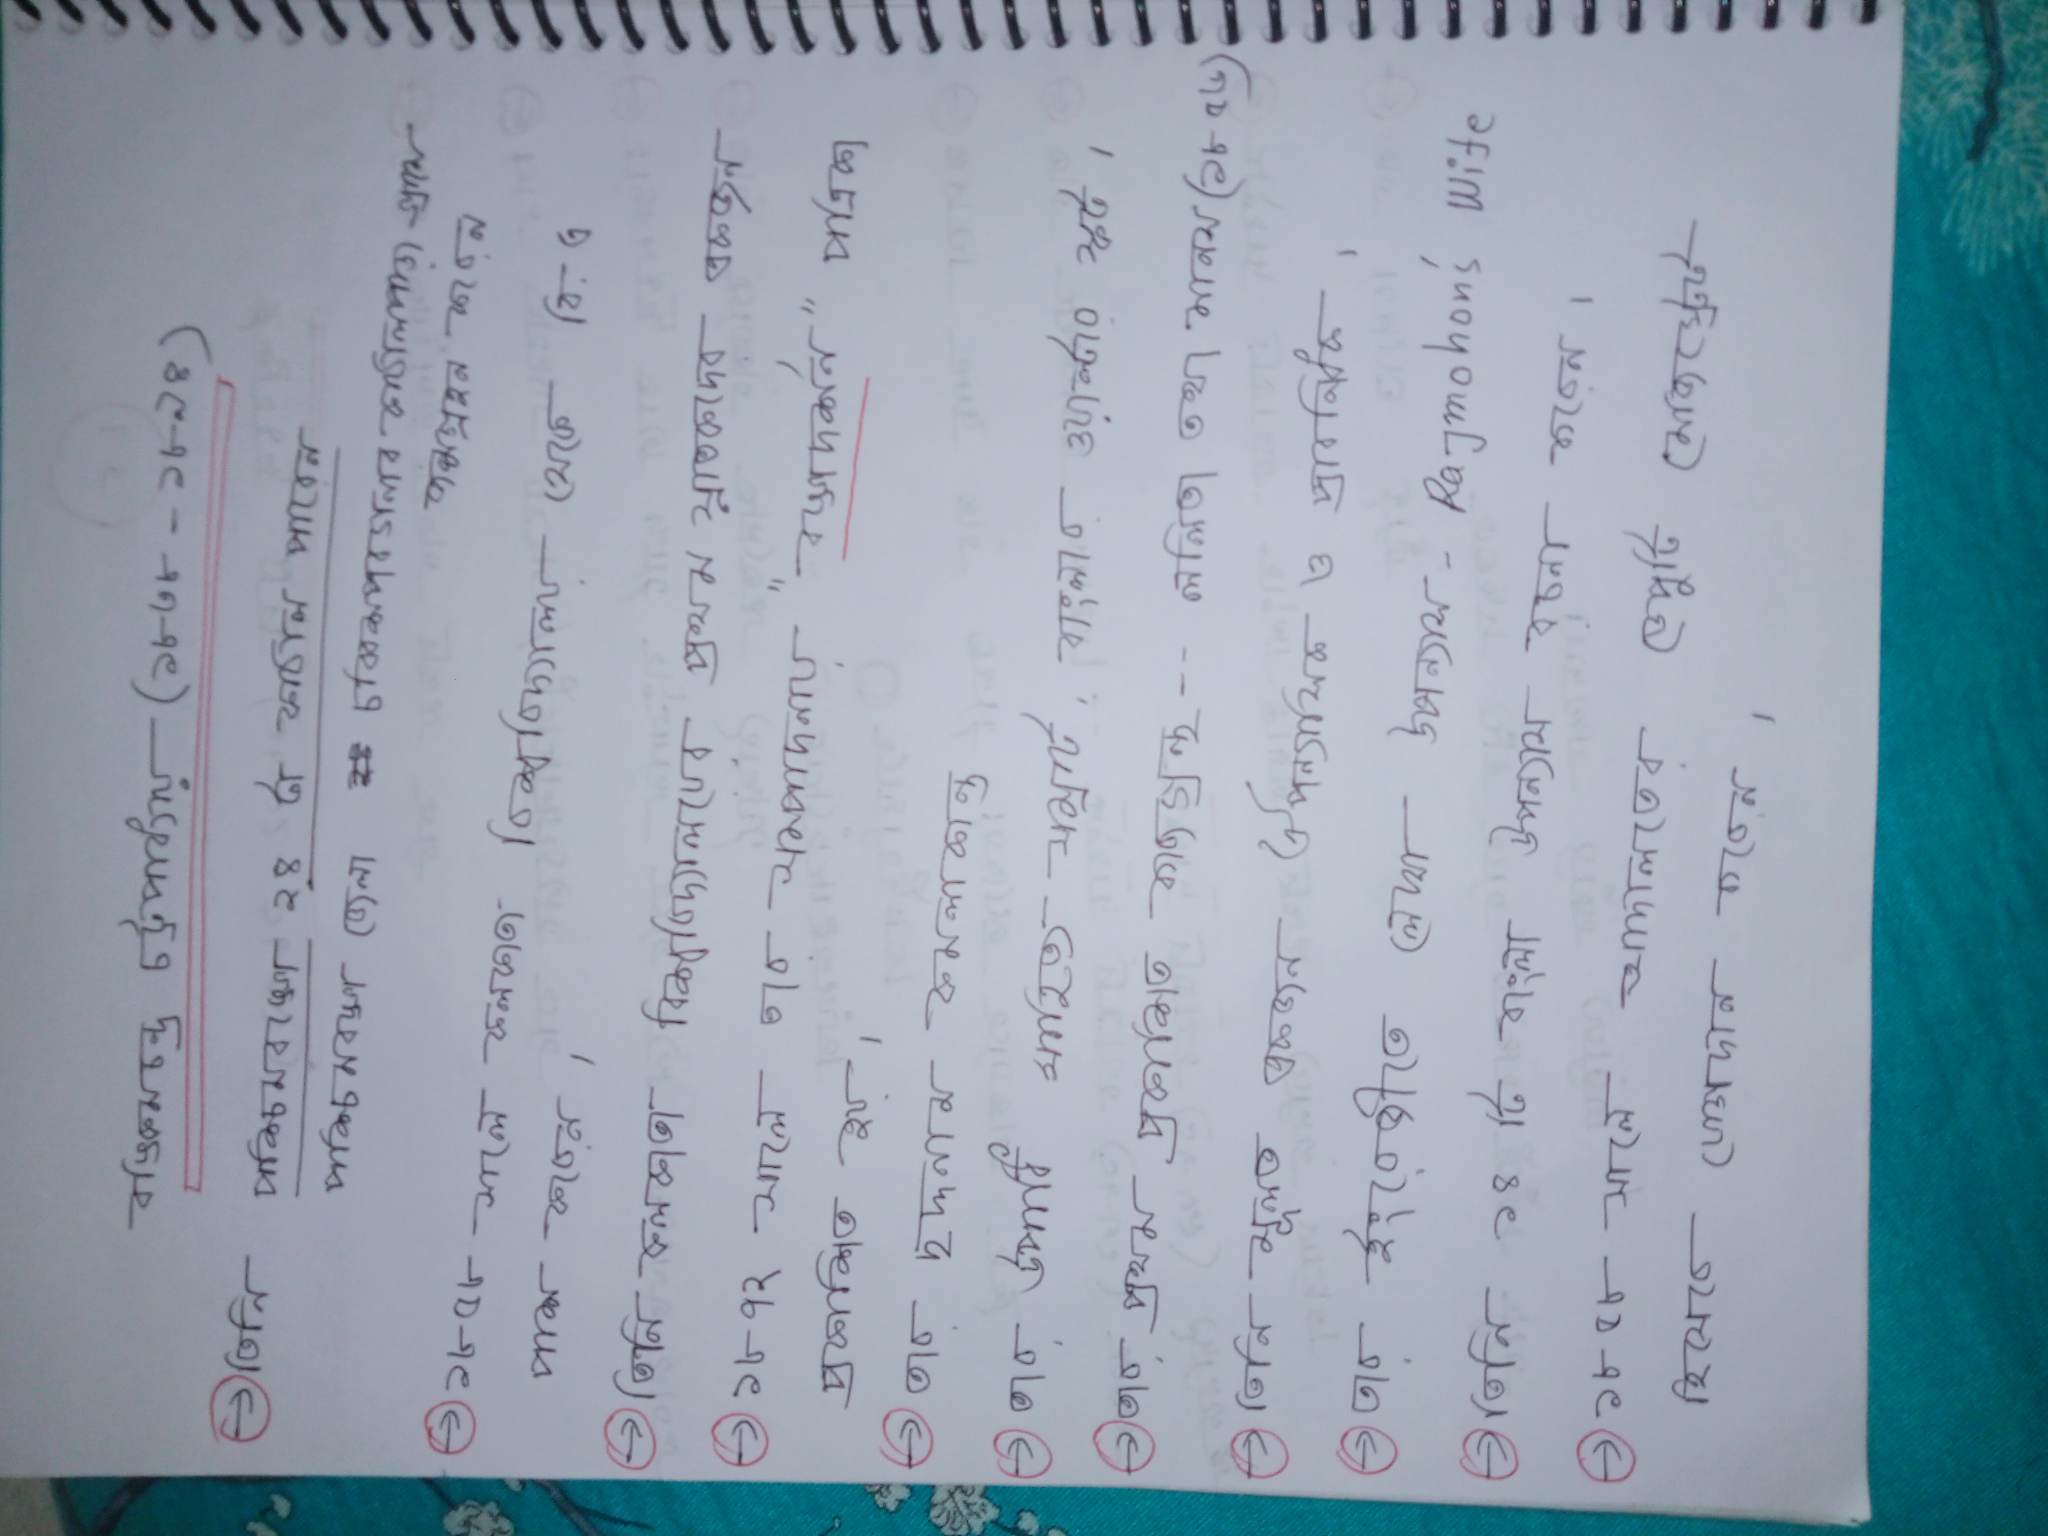 বঙ্কিমচন্দ্র চট্টোপাধ্যায় (১৮৩৮ - ১৮৯৪)
→ তিনি পশ্চিমবঙ্গে ২৪ টা কাঠাল পারেন
পশ্চিমবঙ্গ জেলা চব্বিশপরগনার কাঠালপাড়া গ্রামে
জন্মগ্রহন করেন
→ ১৮৫৮ সালে কলকাতা বিশ্ববিদ্যালয় থেকে বি. এ
পাশ করেন।
→ তিনি কলকাতা বিশ্ববিদ্যালয়ের প্রথম স্নাতকদের একজন
→ ১৮৭২ সালে তার সম্পাদনায় "বঙ্গদর্শন" পত্রিকা
প্রকাশিত হয়।
→ তার ছদ্মনাম কমলাকান্ত
→ তার উপাধি সাহিত্য সম্রাট, বাংলার ওয়াল্টার স্কট।
→ তার প্রথম প্রকাশিত কাব্যগ্রন্থ -- ললিতা তথা মানস (১৮৫৬)
→ তিনি মূলত একজন ঔপন্যাসিক ও প্রাবন্ধিক।
→ তার ইংরেজীতে লেখা উপন্যাস - Rajmohon's Wife
→ তিনি ১৪ টি বাংলা উপন্যাস রচনা করেন।
→ ১৮৫৮ সালে আদালতের ডেপুটি মেজিস্ট্রেট
হিসেবে যোগদান করেন।